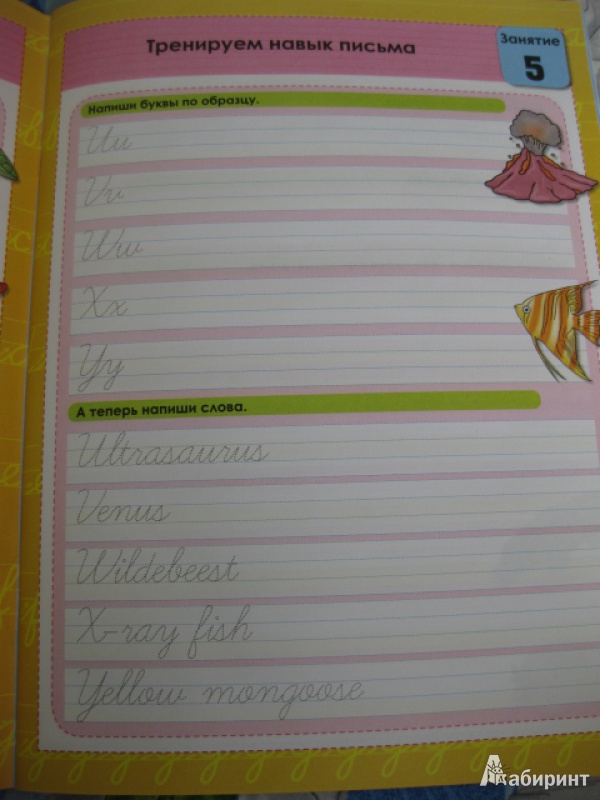 Тренируем навык письма
Занятие
5
Напиши буквы по образцу.
Uu
Vv
Ww
Xx
Yy
А теперь напиши слова.
Ultrasaurus
Venus
Wildebeest
X-ray fish
Yellow mongoose
Лабиринт